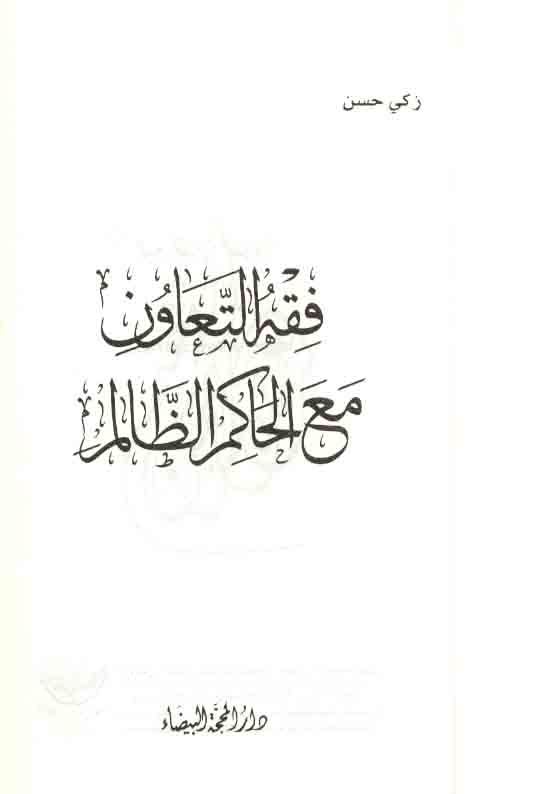 زكي حسن
فِقْهُ التَّعَاوُنِ
مَعَ الحَاكِمِ الظَّالِمِ
دار المحجّة البيضاء